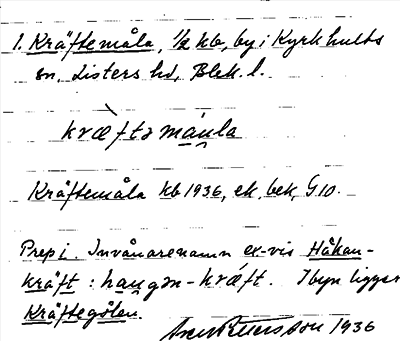 1. Kräftemåla, 1/2 kb, by i Kyrkhults
sn, Listers hd, Blek. l.
kræ̀ftəmáu̯la
Kräftemåla kb 1936, ek, bek, G 10.
Prep i. Invånarenamn ex-vis Håkan-
kräft : hau̯gən-kræ̀ft. I byn ligger
Kräftegölen.
1936